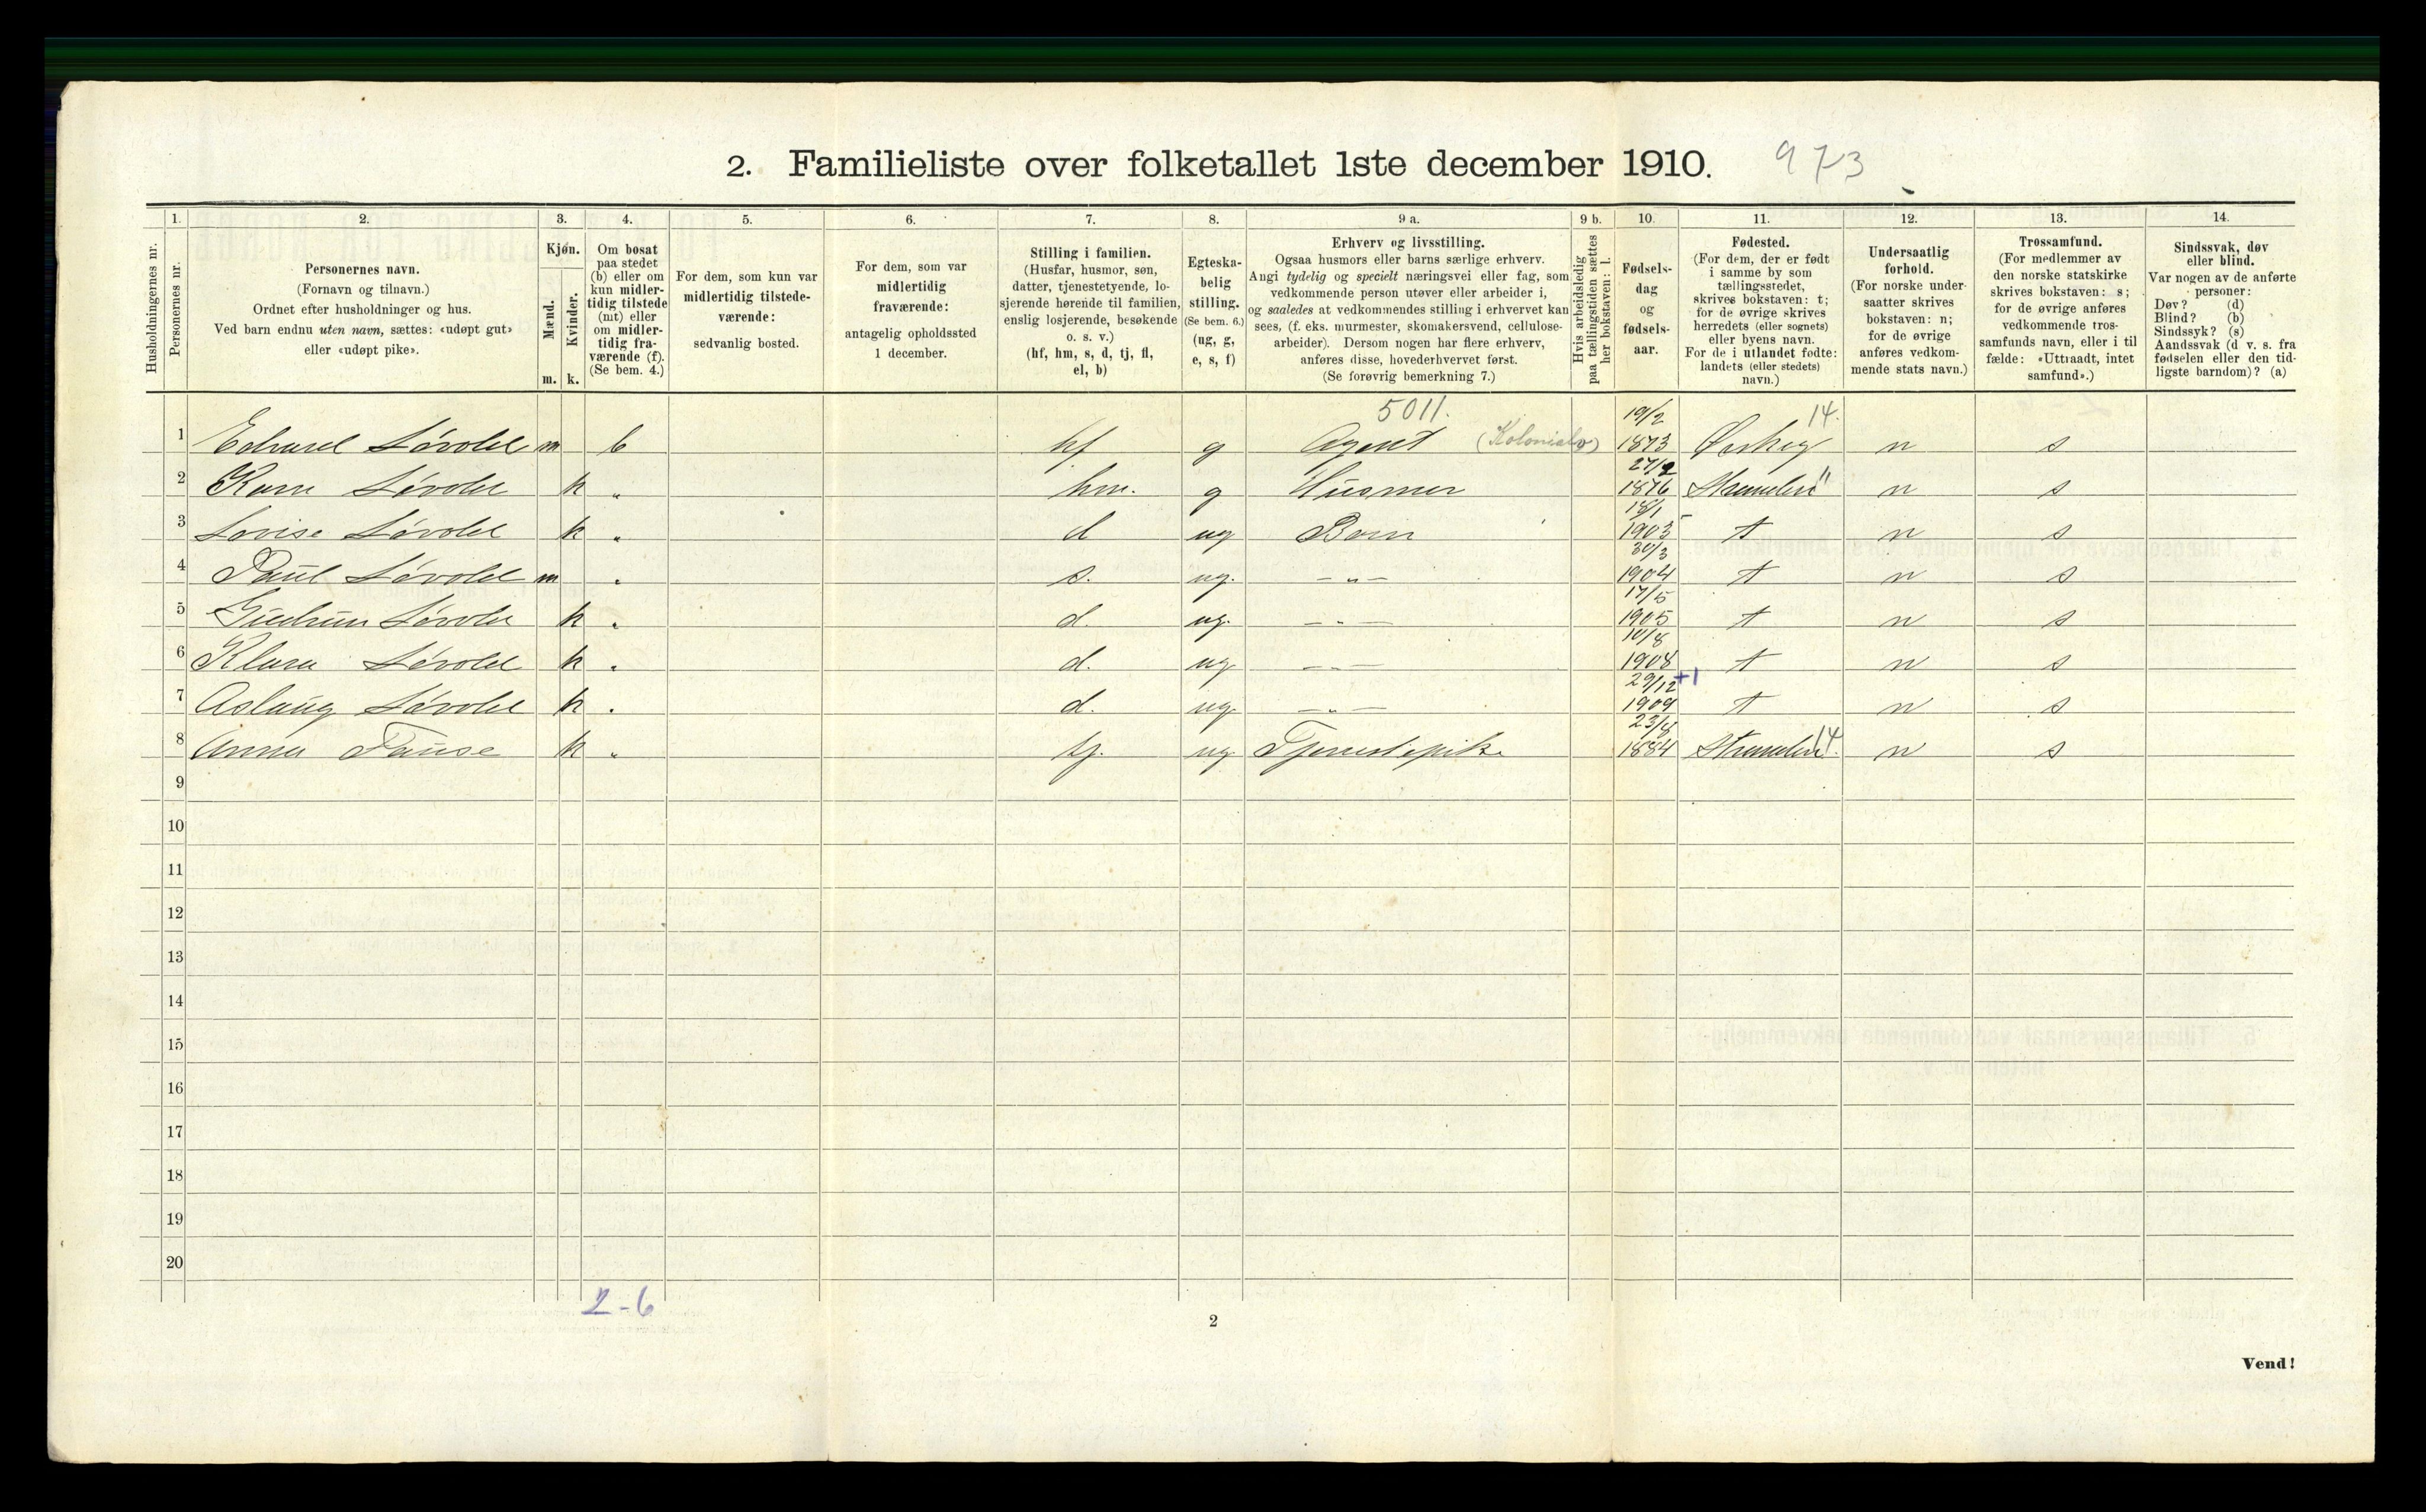 2. Familieliste over folketallet 1ste december 1910. 973
Husholdningernes nr.
1. Personernes nr.
2. Personernes navn. (Fornavn og tilnavn.) Ordnet efter husholdninger og hus. Ved barn endnu uten navn, sættes: «udøpt gut» eller «udøpt pike».
3. Kjøn. Mænd. m. Kvinder. k.
4. Om bosat paa stedet (b) eller om kun midlertidig tilstede (mt) eller om midlertidig fraværende (f). (Se bem. 4.)
5. For dem, som kun var midlertidig tilstedeværende: sedvanlig bosted.
6. For dem, som var midlertidig fraværende: antagelig opholdssted 1 december.
7. Stilling i familien. (Husfar, husmor, søn, datter, tjenestetyende, losjerende hørende til familien, enslig losjerende, besøkende o. s. v.) (hf, hm, s, d, tj, fl, el, b)
8. Egteskabelig stilling. (Se bem. 6.) (ug, g, e, s, f)
9 a. Erhverv og livsstilling. Ogsaa husmors eller barns særlige erhverv. Angi tydelig og specielt næringsvei eller fag, som vedkommende person utøver eller arbeider i, og saaledes at vedkommendes stilling i erhvervet kan sees, (f. eks. murmester, skomakersvend, cellulosearbeider). Dersom nogen har flere erhverv, anføres disse, hovederhvervet først. (Se forøvrig bemerkning 7.)
9 b. Hvis arbeidsledig paa tællingstiden sættes her bokstaven: l.
10. Fødselsdag og fødselsaar.
11. Fødested. (For dem, der er født i samme by som tællingsstedet, skrives bokstaven: t; for de øvrige skrives herredets (eller sognets) eller byens navn. For de i utlandet fødte: landets (eller stedets) navn.)
12. Undersaatlig forhold. (For norske undersaatter skrives bokstaven: n; for de øvrige anføres vedkommende stats navn.)
13. Trossamfund. (For medlemmer av den norske statskirke skrives bokstaven: s; for de øvrige anføres vedkommende trossamfunds navn, eller i tilfælde: «Uttraadt, intet samfund».)
14. Sindssvak, døv eller blind. Var nogen av de anførte personer: Døv? (d) Blind? (b) Sindssyk? (s) Aandssvak (d v. s. fra fødselen eller den tidligste barndom)? (a)
5011. 19/2 14.
1 Edvard Løvold m b hf g Agent (Kolonialv) 1873 Ørskog n s
27/2
2 Karn Løvold k „ hm. g Husmor 1876 n s
18/1
3 Lovise Løvold k „ d ug Barn 1903 t n s
30/3
4 Paul Løvold m „ s. ug. — „ — 1904 t n s
17/5
5 Gudrun Løvold k „ d. ug. — „ — 1905 t n s
10/8
6 Klara Løvold k „ d. ug — „ — 1908 t n s
29/12 +1
7 Aslaug Løvold k „ d. ug. — „ — 1909 t n s
23/8
8 Anna k „ tj. ug. Tjenestepike 1884 14. n s
9
10
11
12
13
14
15
16
17
18
19
20
2-6
2
Vend!